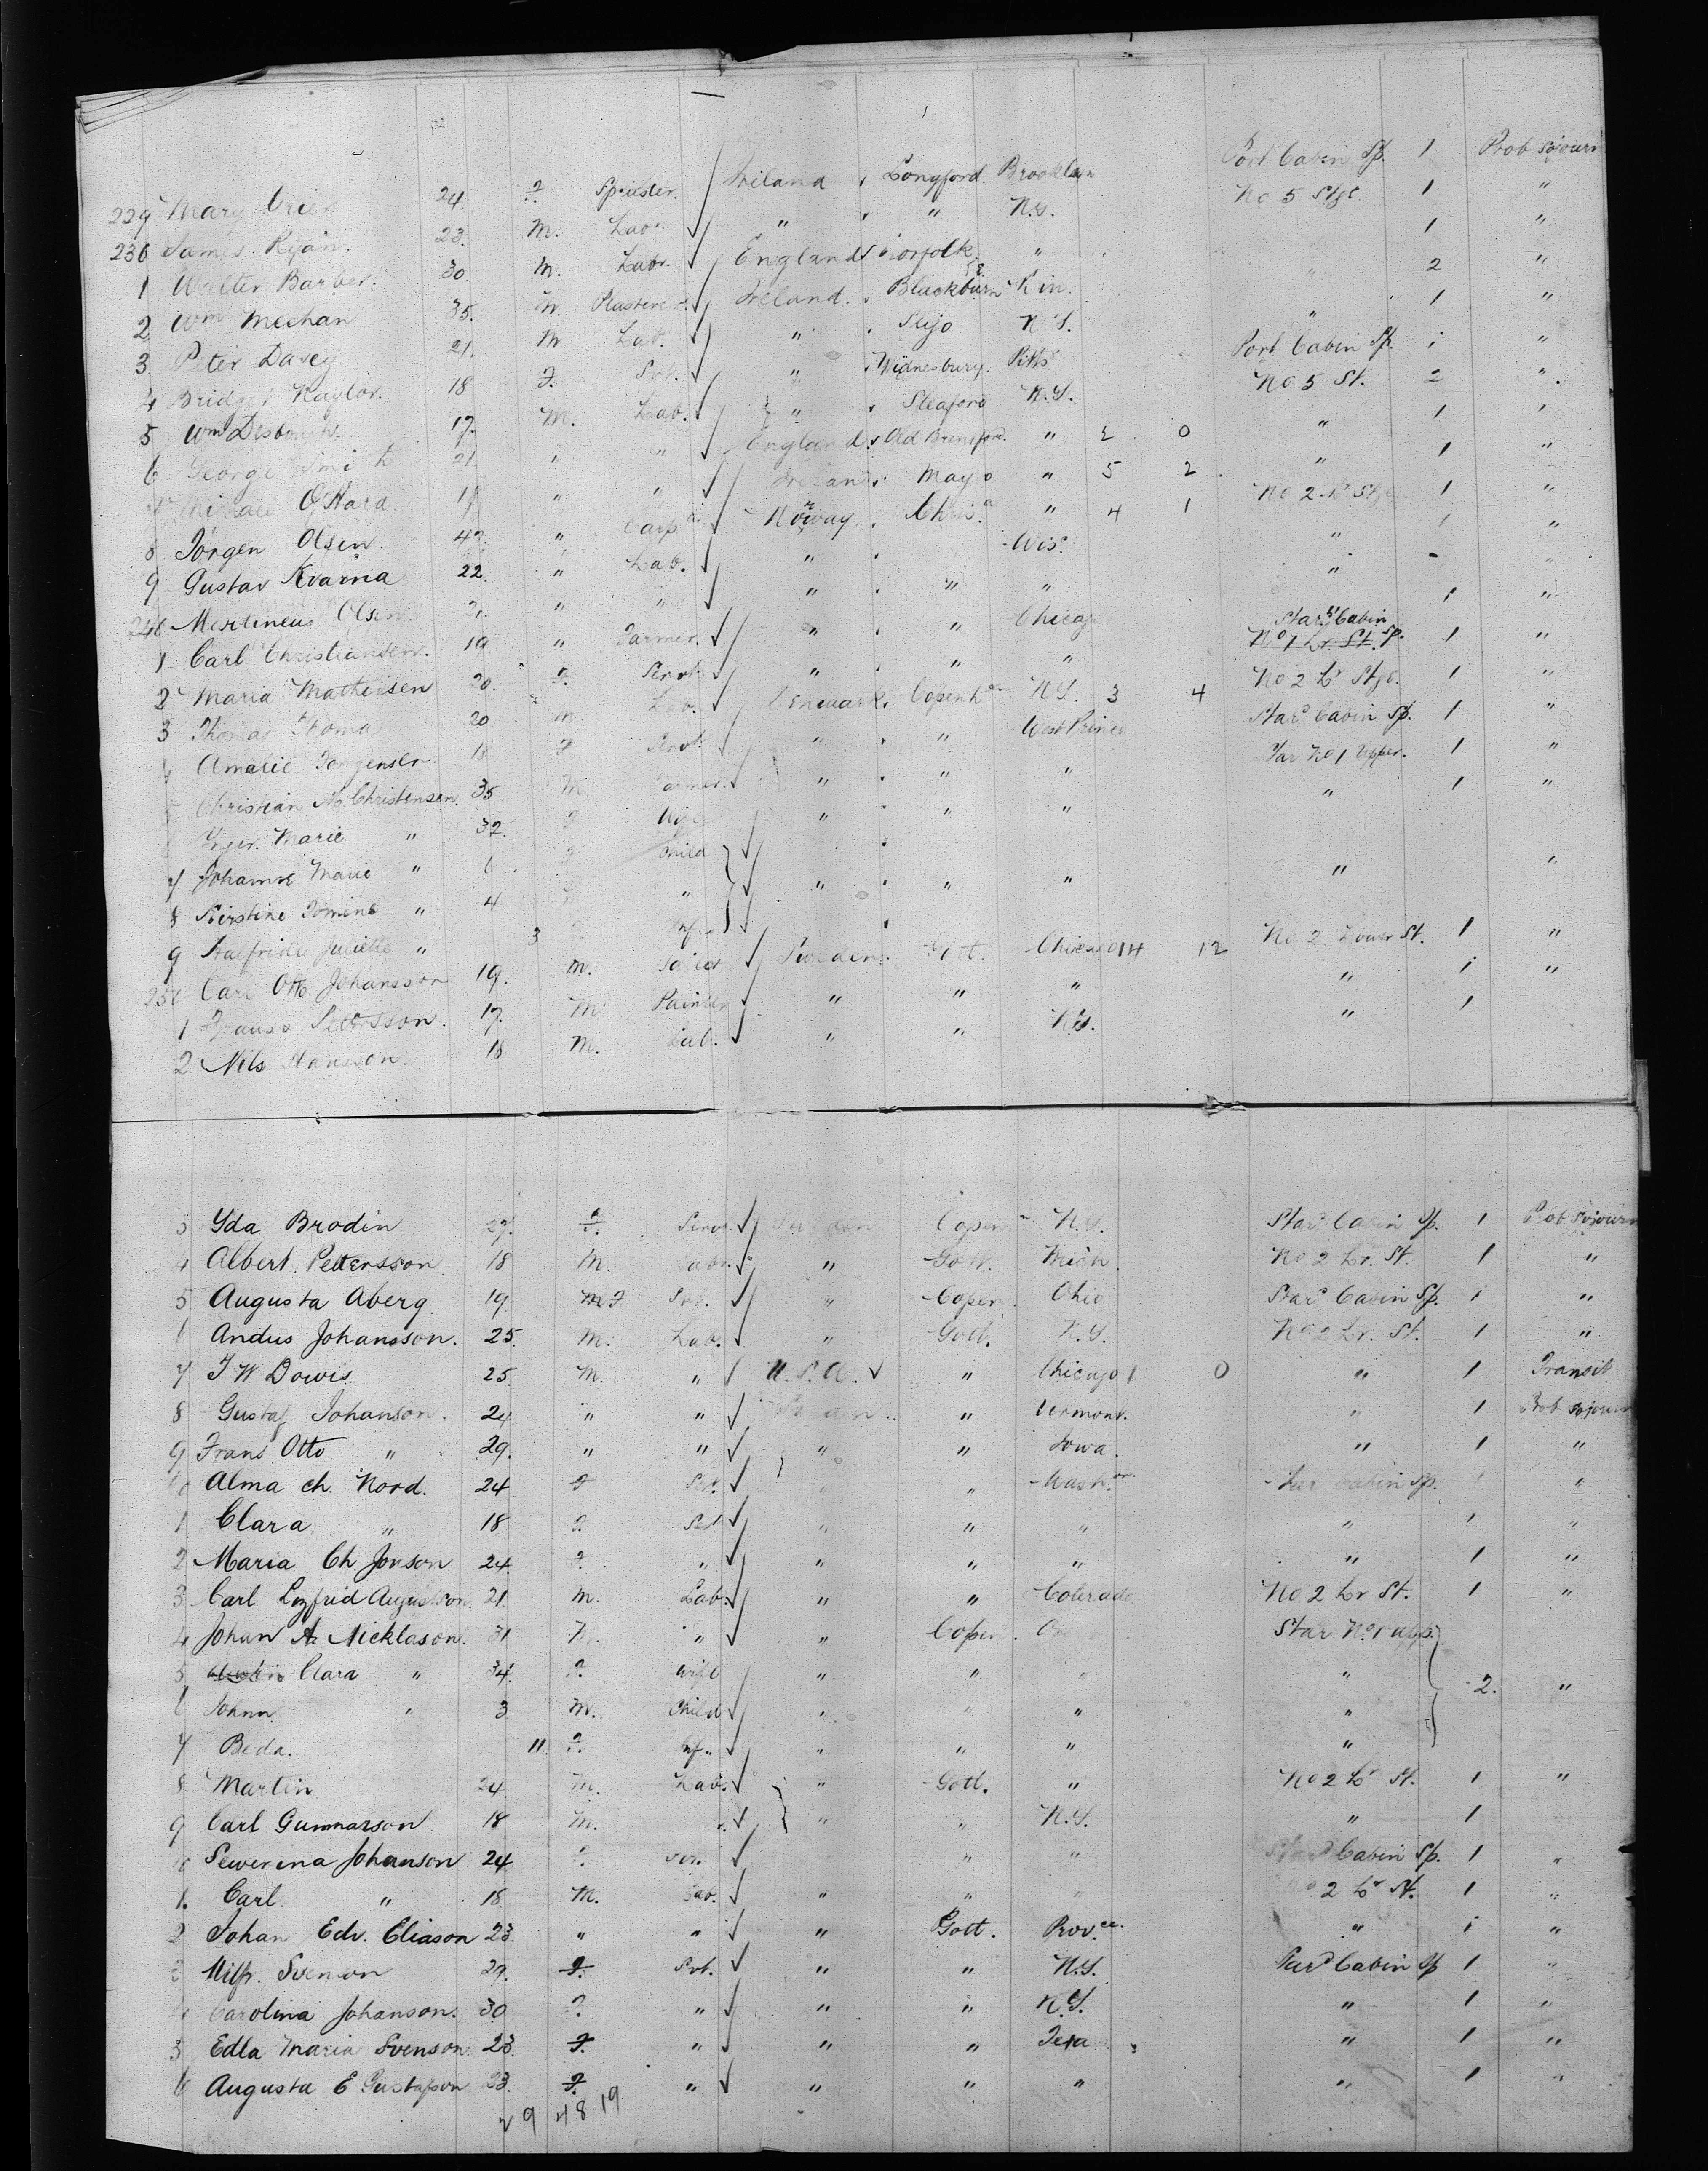 229 Mary 24. F. Spinster. Ireland Longford. Brooklyn Port Cabin Sp. 1 Prob sojourn
230 James Ryan. 23. M. Lab. " " N.Y. No 5 Stge. 1 "
1 Walter Barber. 30. M. Labr. England Norfolk " 1 "
2 Wm Meehan 35. M. Plasterer Ireland. Blackburn " 2 "
3 Peter Davey 21. M Lab. " Sligo N Y. " 1 "
4 Bridget Naylor. 18 F. Svt. " Wednesbury. Pitts Port Cabin Sp. 1 "
5 Wm 17. M. Lab. " Sleaford N.Y. No 5 St. 2 "
6 George Smith 21. " " England. Old " 2 0 " 1 "
7 Michael O'Hara 19 " " Ireland. Mayo " 5 2 " 1 "
8 Jörgen Olsen. 42. " Carpr. Norway. Chris.a " 4 1 No 2 Lr Stge 1 "
9 Gustav Kvarna 22. " Lab. " Wis. " 1 "
240 Martineus Olsen. 21. " " " " " " - "
1 Carl Christiansen. 19 " Farmer. " " Chicago No 1 Lr. St. 1 "
2 Maria Mathiesen 20. F. Servt. " " " Starbd Cabin Sp. 1 "
3 Thomas Thoma 20 M. Lab. Denmark. Copenh N.Y. 3 4 No 2 Lr Stge. 1 "
4 Amalie Jorgensen. 18 F Servt. " " West Prince Stard Cabin Sp. 1 "
5 Christian M. Christensen. 35 M. Farmer. " " " Star No 1 Upper. 1 "
6 Inger. Marie " 32. F Wife " " " " 1 "
7 Johanne Marie " 6 F Child
8 Kirstine " 4 F " " " " " "
9 Juliette " 3 F Inf.
250 Carl Otto Johansson 19. M. Tailor Sweden. Gott. Chicago 14 12 No 2 Lower St. 1 "
1 Pettersson. 17. M Painter " " " " 1 "
2 Nils Hansson. 18 M. Lab. " " N.Y. " 1
3 Yda Brodin 27. F. Servt. Sweden Copen N.Y. Stard. Cabin Sp. 1 Prob sojourn
4 Albert. Pettersson 18 M. Labr. " Gott. Mich. No 2 Lr. St. 1 "
5 Augusta Aberg. 19. M F Svt. " Copen. Ohio Stard Cabin Sp. 1 "
6 Andus Johansson. 25. M. Lab. " Gott. N.Y. No 2 Lr. St. 1 "
7 J W Dowis. 25. M. " U.S.A. " Chicago 1 0 " 1 Transit
8 Gustaf Johanson. 24 " " Sweden. " Vermont. " 1 Prob sojourn
9 Frans Otto " 29. " " " " Iowa. " 1 "
60 Alma ch. Nord. 24 F Svt. " " Wash.on Star Cabin Sp. 1 "
1 Clara " 18. F. Svt " " " " 1 "
2 Maria Ch Jonson 24. F. " " " " " 1 "
3 Carl Augustson. 21. M. Lab. " " Colerado No 2 Lr St. 1 "
4 Johan A. Nicklason. 31 M. " " Copen. Star No 1 upp.
5 Clara " 34. F. Wife " " " "
6 Johan " 3 M. Child " " " " 2. "
7 Beda. 11. F. Inf. " " " "
8 Martin 24. M. Lab. " Gott. " No 2 Lr St. 1 "
9 Carl Gunnarson 18 M. " " " N.Y. " 1
70 Sewerina Johanson 24 F. Svt. " " Stard Cabin Sp. 1 "
1. Carl. " 18. M. Lab. " " " No 2 Lr St. 1 "
2 Johan Edv. Eliason 23. " " " Gott. Prov.ce. " 1 "
3 Svenson 29. F. Svt. " " N.Y. Stard Cabin Sp 1 "
4 Carolina Johanson. 30 F. " " " N.Y. " 1 "
5 Edla Maria Svenson 23. F. " " " Texa " 1 "
6 Augusta E Gustafson 23. F. " " " " " 1 "
29 48 19